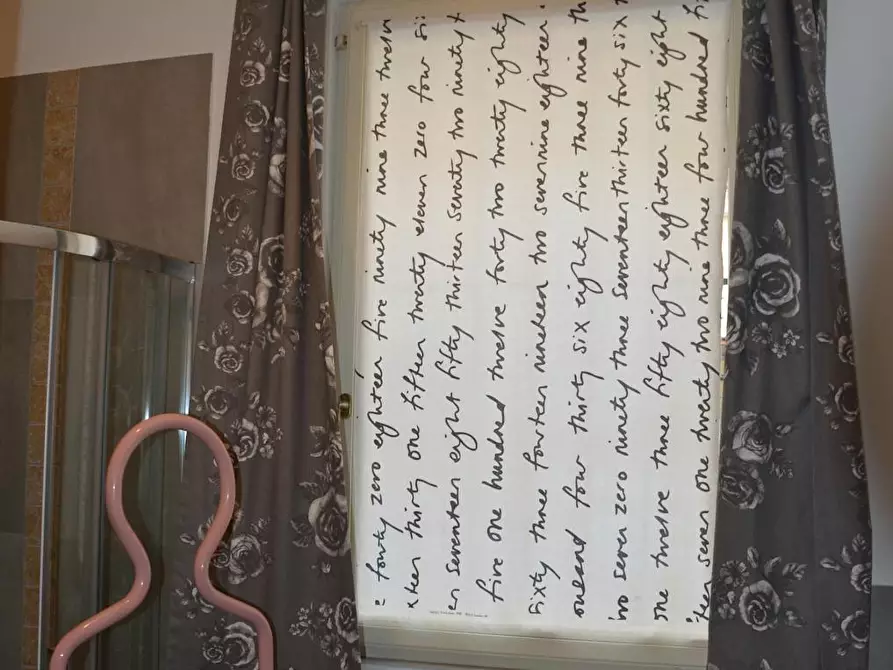 forty zero eighteen five ninety nine three twelv
teen thirty one fifteen twenty eleven zero four si
en seventeen eight fifty thirteen seventy two ninety t
five one hundred twelve forty two twenty eighty
sixty three fourteen nineteen two seven nine eighteen
and four thirty six eighty five three nine th
wo seven zero ninety three seventeen thirteen forty six
one twelve three fifty eighty eighteen sixty eight
teen seven one twenty two nine three four hundred fi